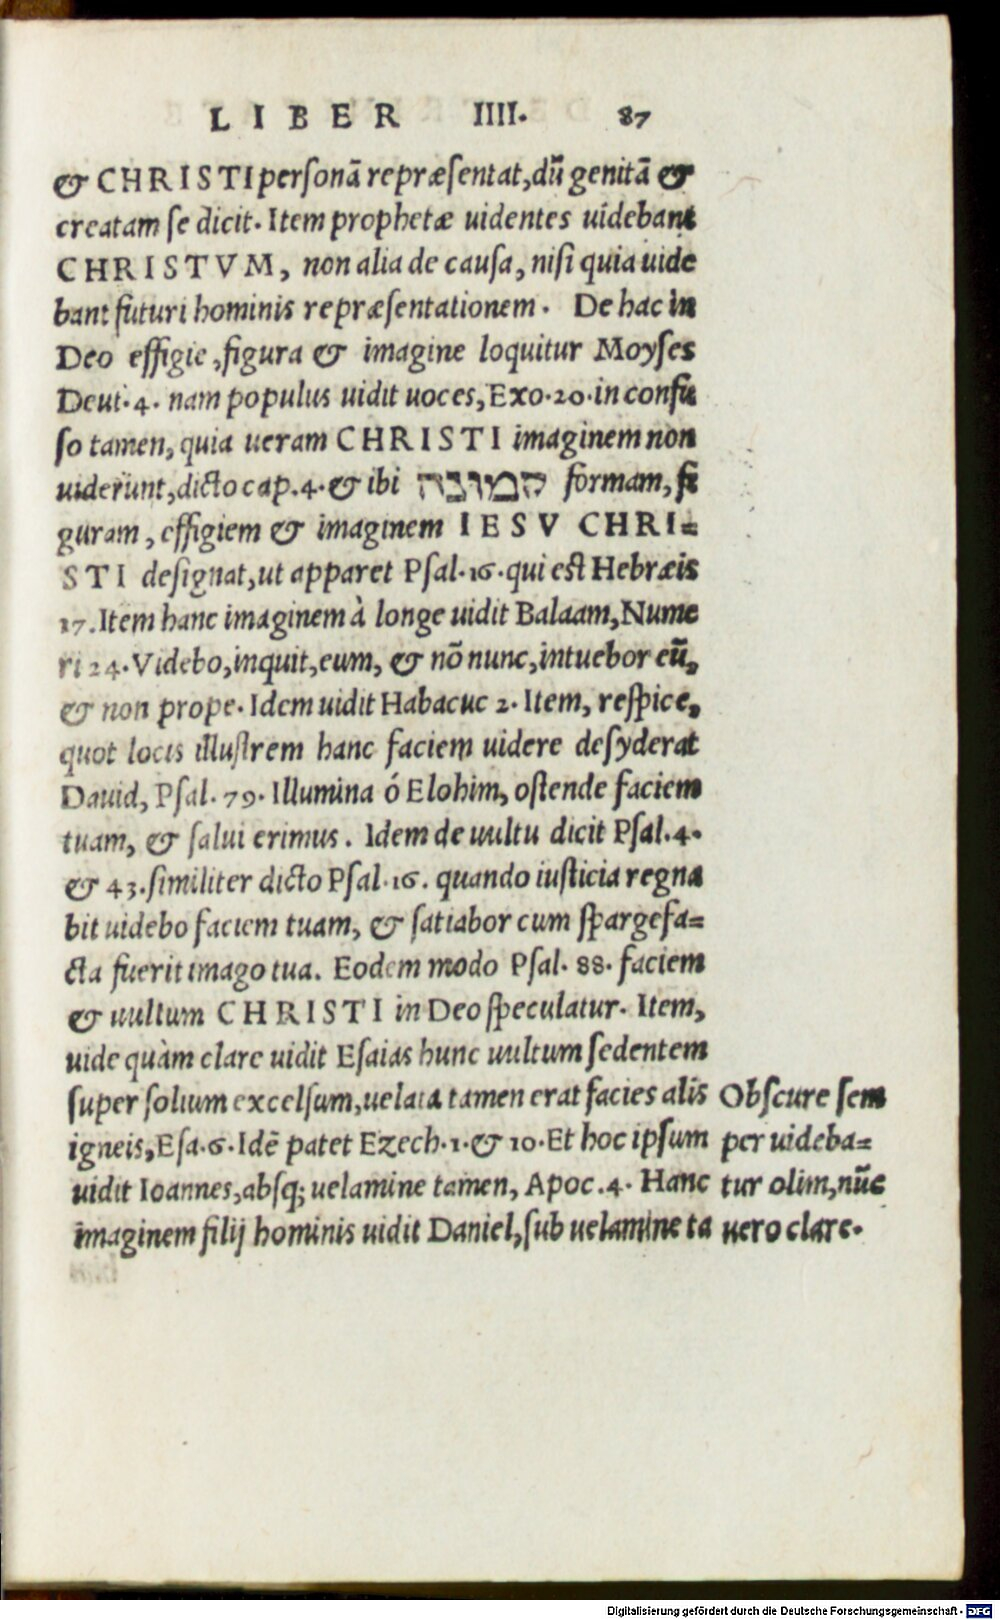 LIBER IIII. 87
& CHRISTI personã repræsentat, dũ genitã &
creatam se dicit. Item prophetæ uidentes uidebant
CHRISTVM, non alia de causa, nisi quia uide
bant futuri hominis repræsentationem. De hac in
Deo effigie, figura & imagine loquitur Moyses
Deut. 4. nam populus uidit uoces, Exo. 20. in confu
so tamen, quia ueram CHRISTI imaginem non
uiderunt, dicto cap. 4. & ibi formam, fi
guram, effigiem & imaginem IESV CHRI=
STI designat, ut apparet Psal. 16. qui est Hebræis
17. Item hanc imaginem à longe uidit Balaam, Nume
ri 24. Videbo, inquit, eum, & nõ nunc, intuebor eũ,
& non prope. Idem uidit Habacuc 2. Item, respice,
quot locis illustrem hanc faciem uidere desyderat
Dauid, Psal. 79. Illumina ó Elohim, ostende faciem
tuam, & salui erimus. Idem de uultu dicit Psal. 4.
& 43. similiter dicto Psal. 16. quando iusticia regna
bit uidebo faciem tuam, & satiabor cum spargefa=
cta fuerit imago tua. Eodem modo Psal. 88. faciem
& uultum CHRISTI in Deo speculatur. Item,
uide quàm clare uidit Esaias hunc uultum sedentem
super solium excelsum, uelata tamen erat facies alis
igneis, Esa. 6. Idẽ patet Ezech. 1. & 10. Et hoc ipsum
uidit Ioannes, absq; uelamine tamen, Apoc. 4. Hanc
imaginem filij hominis uidit Daniel, sub uelamine ta
Obscure sem
per uideba=
tur olim, nũc
uero clare.
Digitalisierung gefördert durch die Deutsche Forschungsgemeinschaft - DFG